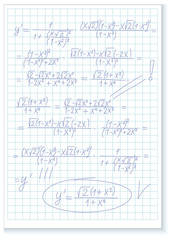 y' = 1/(1+(x√2/(1-x²))²) · ((x√2)'(1-x²)-x√2(1-x²)')/(1-x²)² =
= (1-x²)²/((1-x²)²+2x²) · (√2(1-x²)-x√2(-2x))/(1-x²)² =
= (√2-√2x²+2√2x²)/(1-2x²+x⁴+2x²) = √2(1+x²)/(1+x⁴) !
√2(1+x²)/(1+x⁴) = (√2-√2x²+2√2x²)/(1-2x²+x⁴+2x²) =
= (√2(1-x²)-x√2(-2x))/(1-x²)² · (1-x²)²/((1-x²)²+2x²) =
= ((x√2)'(1-x²)-x√2(1-x²)')/(1-x²)² · 1/(1+(x√2/(1-x²))²) =
= y' !!!
y' = √2(1+x²)/(1+x⁴) √